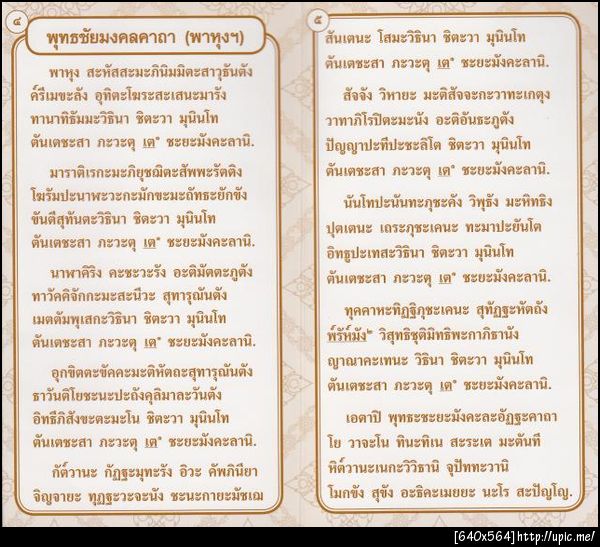 ๔
พุทธชัยมงคลคาถา (พาหุงฯ)
พาหุง สะหัสสะมะภินิมมิตะสาวุธันตัง
ค๎รีเมขะลัง อุทิตะโฆระสะเสนะมารัง
ทานาทิธัมมะวิธินา ชิตะวา มุนินโท
ตันเตชะสา ภะวะตุ เต* ชะยะมังคะลานิ.
มาราติเรกะมะภิยุชฌิตะสัพพะรัตติง
โฆรัมปะนาฬะวะกะมักขะมะถัทธะยักขัง
ขันตีสุทันตะวิธินา ชิตะวา มุนินโท
ตันเตชะสา ภะวะตุ เต* ชะยะมังคะลานิ.
นาฬาคิริง คะชะวะรัง อะติมัตตะภูตัง
ทาวัคคิจักกะมะสะนีวะ สุทารุณันตัง
เมตตัมพุเสกะวิธินา ชิตะวา มุนินโท
ตันเตชะสา ภะวะตุ เต* ชะยะมังคะลานิ.
อุกขิตตะขัคคะมะติหัตถะสุทารุณันตัง
ธาวันติโยชะนะปะถังคุลิมาละวันตัง
อิทธีภิสังขะตะมะโน ชิตะวา มุนินโท
ตันเตชะสา ภะวะตุ เต* ชะยะมังคะลานิ.
กัต๎วานะ กัฏฐะมุทะรัง อิวะ คัพภินียา
จิญจายะ ทุฏฐะวะจะนัง ชะนะกายะมัชเฌ
๕
สันเตนะ โสมะวิธินา ชิตะวา มุนินโท
ตันเตชะสา ภะวะตุ เต* ชะยะมังคะลานิ.
สัจจัง วิหายะ มะติสัจจะกะวาทะเกตุง
วาทาภิโรปิตะมะนัง อะติอันธะภูตัง
ปัญญาปะทีปะชะลิโต ชิตะวา มุนินโท
ตันเตชะสา ภะวะตุ เต* ชะยะมังคะลานิ.
นันโทปะนันทะภุชะคัง วิพุธัง มะหิทธิง
ปุตเตนะ เถระภุชะเคนะ ทะมาปะยันโต
อิทธูปะเทสะวิธินา ชิตะวา มุนินโท
ตันเตชะสา ภะวะตุ เต* ชะยะมังคะลานิ.
ทุคคาหะทิฏฐิภุชะเคนะ สุทัฏฐะหัตถัง
พ๎รัห๎มัง๒ วิสุทธิชุติมิทธิพะกาภิธานัง
ญาณาคะเทนะ วิธินา ชิตะวา มุนินโท
ตันเตชะสา ภะวะตุ เต* ชะยะมังคะลานิ.
เอตาปิ พุทธะชะยะมังคะละอัฏฐะคาถา
โย วาจะโน ทินะทิเน สะระเต มะตันที
หิต๎วานะเนกะวิวิธานิ จุปัททะวานิ
โมกขัง สุขัง อะธิคะเมยยะ นะโร สะปัญโญ.
[640x564]http://upic.me/